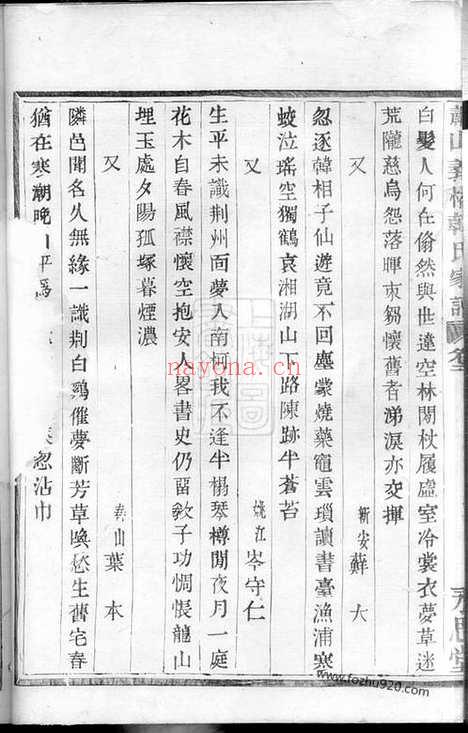 蕭山義橋韓氏家譜 卷
白髮人何在翛然與世違空林閑杖履虛室冷裳衣夢草迷
荒隴慈烏怨落暉束芻懷舊者涕淚亦交揮
又 新安蘇大
忽逐韓相子仙遊竟不回塵蒙燒藥竈雲瑣讀書臺漁浦寒
蛟泣瑤空獨鶴哀湘湖山下路陳跡半蒼苔
又 姚江岑守仁
生平未識荆州面夢入南柯我不逢半榻琴樽閒夜月一庭
花木自春風襟懷空抱安人畧書史仍畱敎子功惆悵龍山
埋玉處夕陽孤塚暮煙濃
又 葉本
隣邑聞名久無緣一識荆白鷄催夢斷芳草喚愁生舊宅春
猶在寒潮晚 平爲 忽沾巾
nayona.cn
www.fozhu920.com